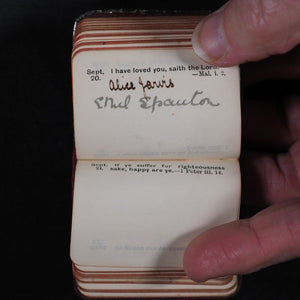 Sept. I have loved you, saith the Lord.
20. —Mal. i. 2.
Alice Jarvis
Ethel Spauton
Sept. If ye suffer for righteousness
21. sake, happy are ye.—1 Peter iii. 14.